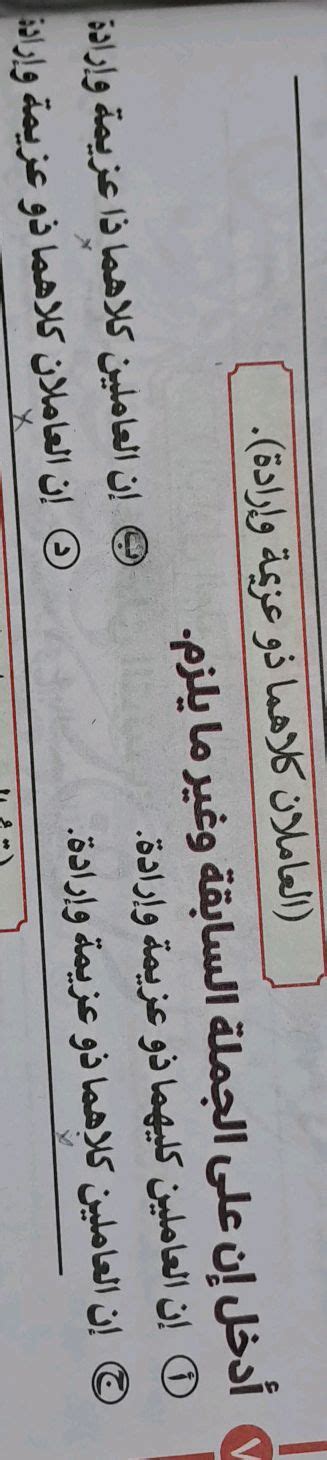 (العاملان كلاهما ذو عزيمة وإرادة).
٧ أدخل إن على الجملة السابقة وغير ما يلزم.
أ إن العاملين كليهما ذو عزيمة وإرادة.
ب إن العاملين كلاهما ذا عزيمة وإرادة
ج إن العاملين كلاهما ذو عزيمة وإرادة.
د إن العاملان كلاهما ذو عزيمة وإرادة